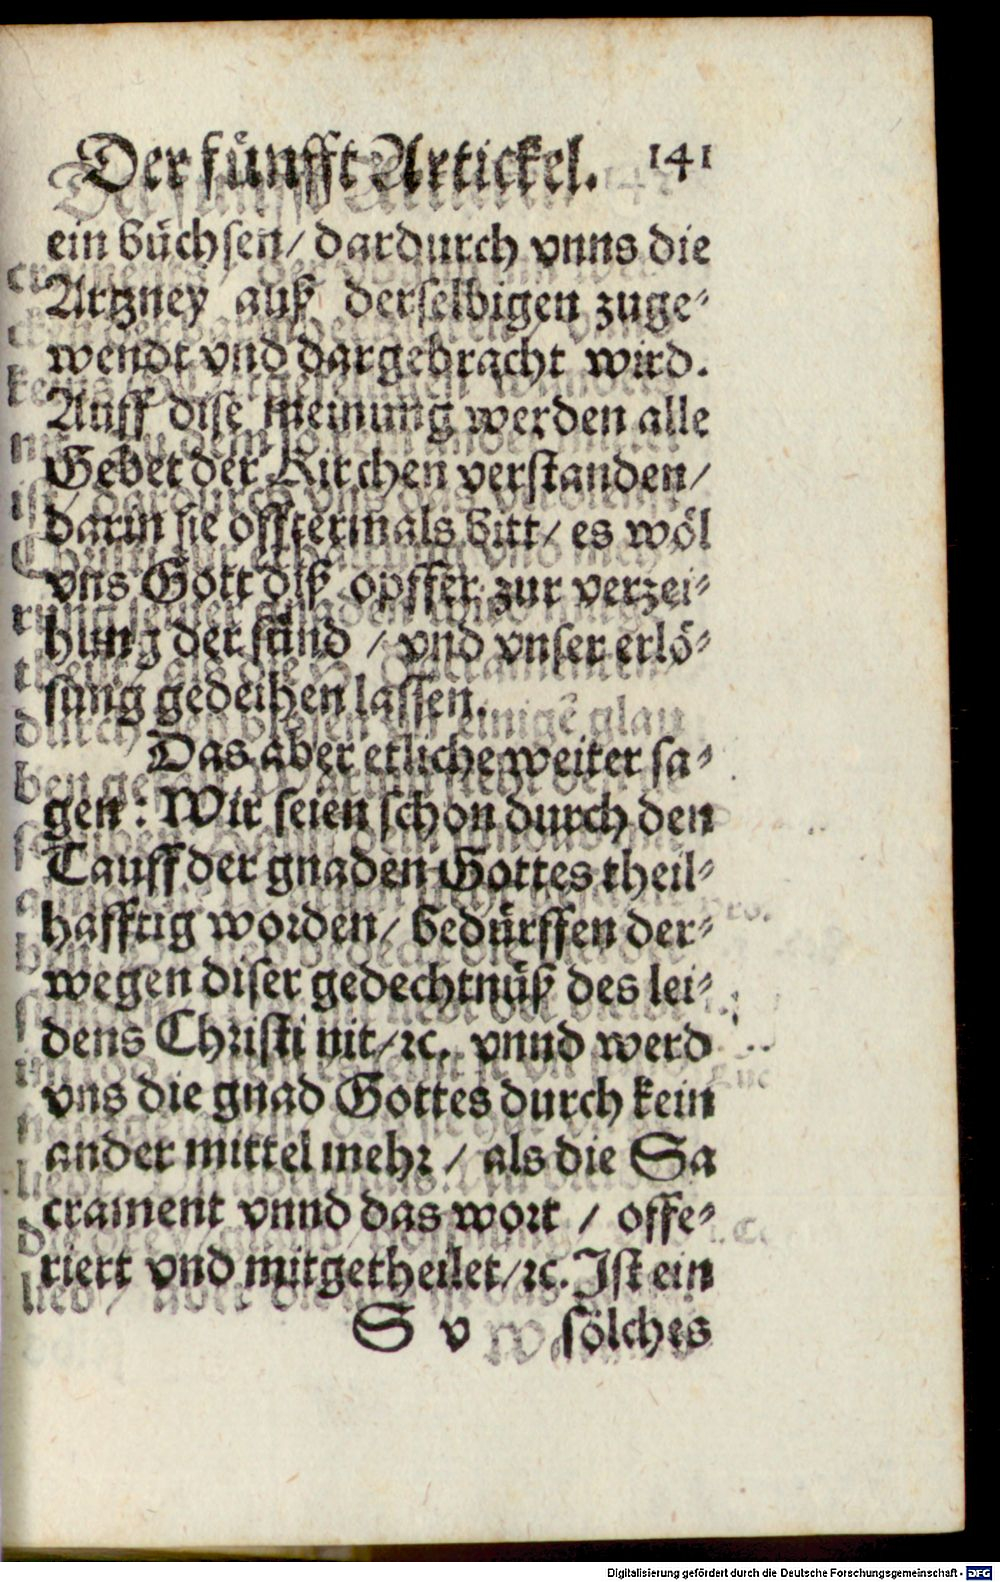 Der fünfft Artickel. 141
ein büchsen/ dardurch vnns die
Artzney auß derselbigen zuge-
wendt vnd dargebracht wird.
Auff dise meinung werden alle
Gebet der Kirchen verstanden/
darin sie offtermals bitt/ es wöl
vns Gott diß opffer zur verzei-
hung der sünd / vnd vnser erlö-
sung gedeihen lassen.
Das aber etliche weiter sa-
gen: Wir seien schon durch den
Tauff der gnaden Gottes theil-
hafftig worden/ bedürffen der-
wegen diser gedechtnüß des lei-
dens Christi nit/ ꝛc. vnnd werd
vns die gnad Gottes durch kein
ander mittel mehr / als die Sa
crament vnnd das wort / offe-
riert vnd mitgetheilet/ ꝛc. Ist ein
S v sölches
Digitalisierung gefördert durch die Deutsche Forschungsgemeinschaft - DFG